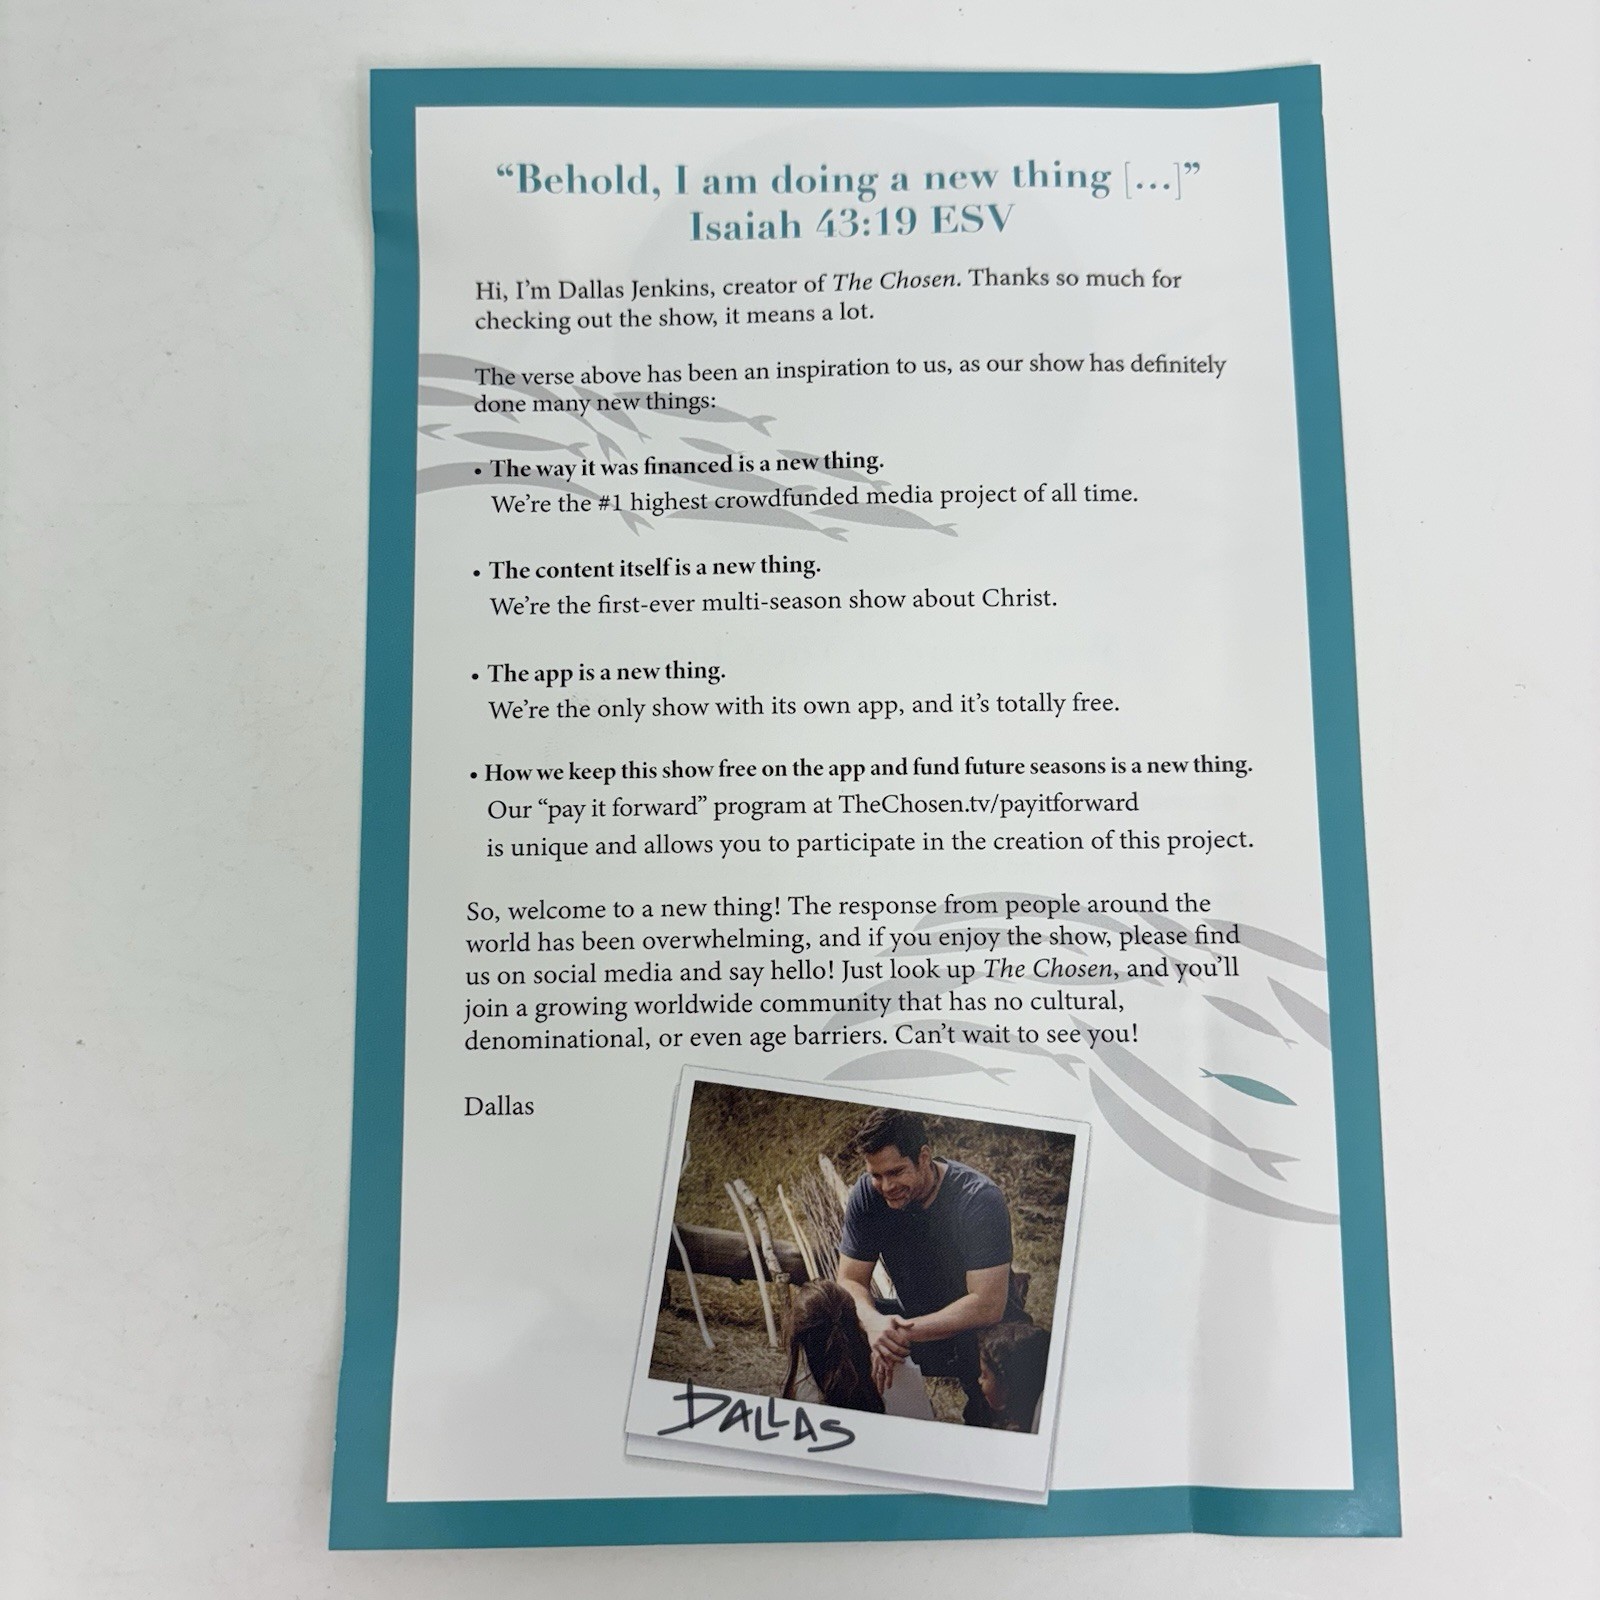 “Behold, I am doing a new thing [...]”
Isaiah 43:19 ESV
Hi, I’m Dallas Jenkins, creator of The Chosen. Thanks so much for
checking out the show, it means a lot.
The verse above has been an inspiration to us, as our show has definitely
done many new things:
• The way it was financed is a new thing.
We’re the #1 highest crowdfunded media project of all time.
• The content itself is a new thing.
We’re the first-ever multi-season show about Christ.
• The app is a new thing.
We’re the only show with its own app, and it’s totally free.
• How we keep this show free on the app and fund future seasons is a new thing.
Our “pay it forward” program at TheChosen.tv/payitforward
is unique and allows you to participate in the creation of this project.
So, welcome to a new thing! The response from people around the
world has been overwhelming, and if you enjoy the show, please find
us on social media and say hello! Just look up The Chosen, and you’ll
join a growing worldwide community that has no cultural,
denominational, or even age barriers. Can’t wait to see you!
Dallas
DALLAS